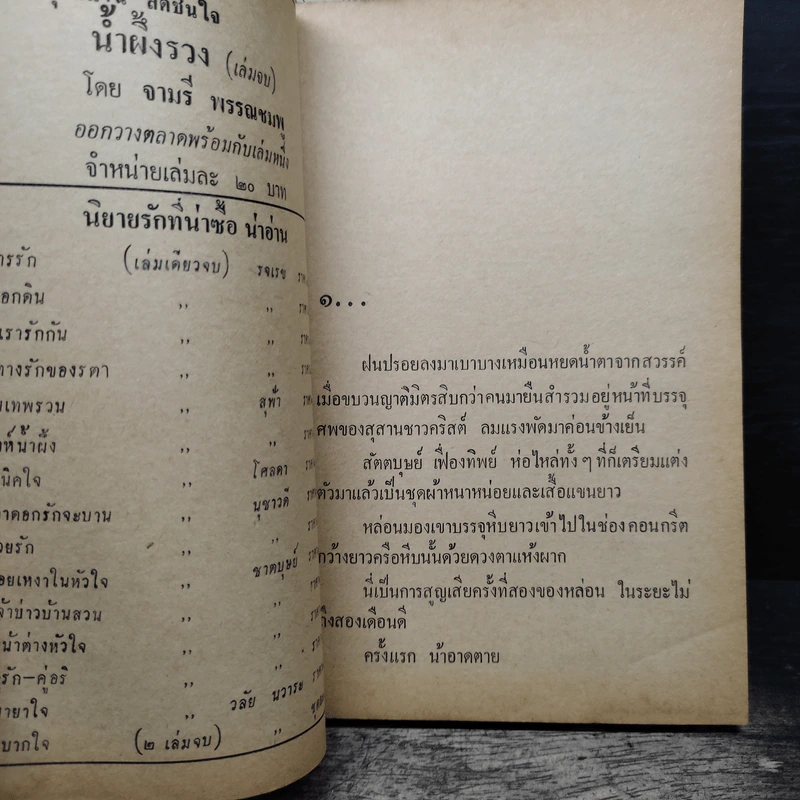 สดชื่นใจ
น้ำผึ้งรวง (เล่มจบ)
โดย จามรี พรรณชมพู
ออกวางตลาดพร้อมกับเล่มหนึ่ง
จำหน่ายเล่มละ ๒๐ บาท
นิยายรักที่น่าซื้อ น่าอ่าน
ารรัก (เล่มเดียวจบ) รจเรข
อกดิน ,, ,,
เรารักกัน ,, ,,
ทางรักของรตา ,,
มเทพรวน ,, สุฟ้า
ห์น้ำผึ้ง ,, ,,
นิคใจ ,, โศลดา
าดอกรักจะบาน ,, นุชาวดี
วยรัก ,, ,,
อยเหงาในหัวใจ ,, ชาตบุษย์
จ้าบ่าวบ้านสวน ,, ,,
น้าต่างหัวใจ ,, ,,
รัก-คู่อริ ,, ,,
มายาใจ ,, วลัย นวาระ
บากใจ (๒ เล่มจบ) ,,
๑...
ฝนปรอยลงมาเบาบางเหมือนหยดน้ำตาจากสวรรค์
เมื่อขบวนญาติมิตรสิบกว่าคนมายืนสำรวมอยู่หน้าที่บรรจุ
ศพของสุสานชาวคริสต์ ลมแรงพัดมาค่อนข้างเย็น
สัตตบุษย์ เฟื่องทิพย์ ห่อไหล่ทั้ง ๆ ที่ก็เตรียมแต่ง
ตัวมาแล้วเป็นชุดผ้าหนาหน่อยและเสื้อแขนยาว
หล่อนมองเขาบรรจุหีบยาวเข้าไปในช่องคอนกรีต
กว้างยาวครือหีบนั้นด้วยดวงตาแห้งผาก
นี่เป็นการสูญเสียครั้งที่สองของหล่อน ในระยะไม่
ถึงสองเดือนดี
ครั้งแรก น้าอาดตาย